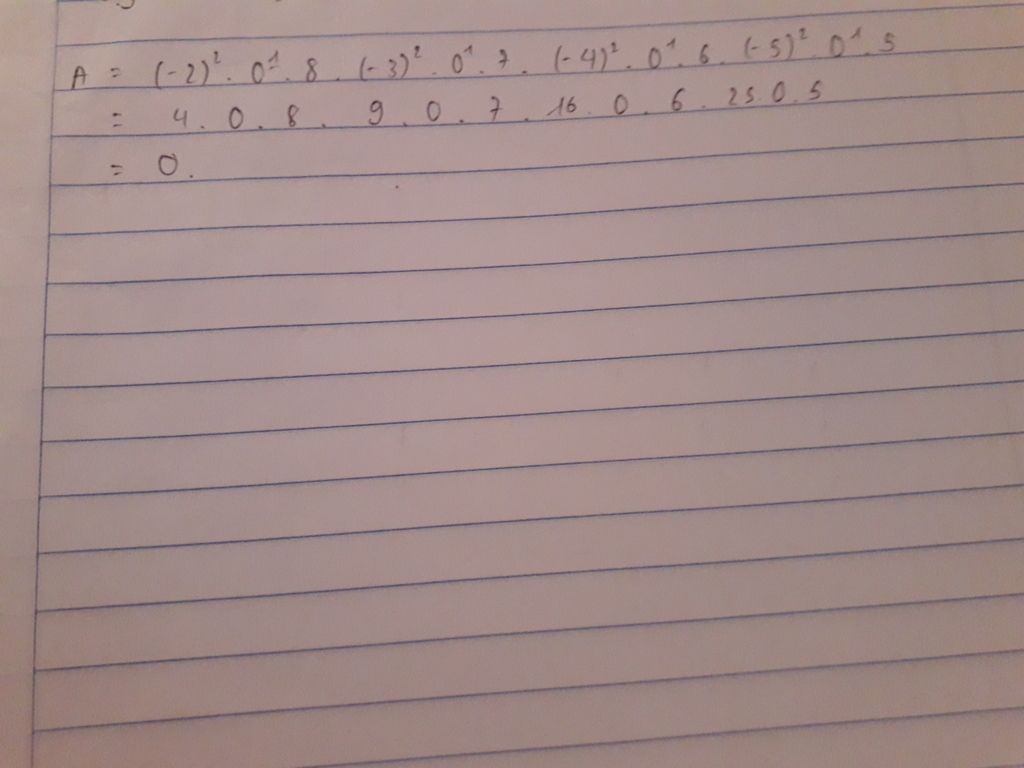 A = (-2)². 0¹. 8. (-3)². 0¹. 7. (-4)². 0¹. 6. (-5)². 0¹. 5
= 4. 0. 8. 9. 0. 7. 16. 0. 6. 25. 0. 5
= 0.